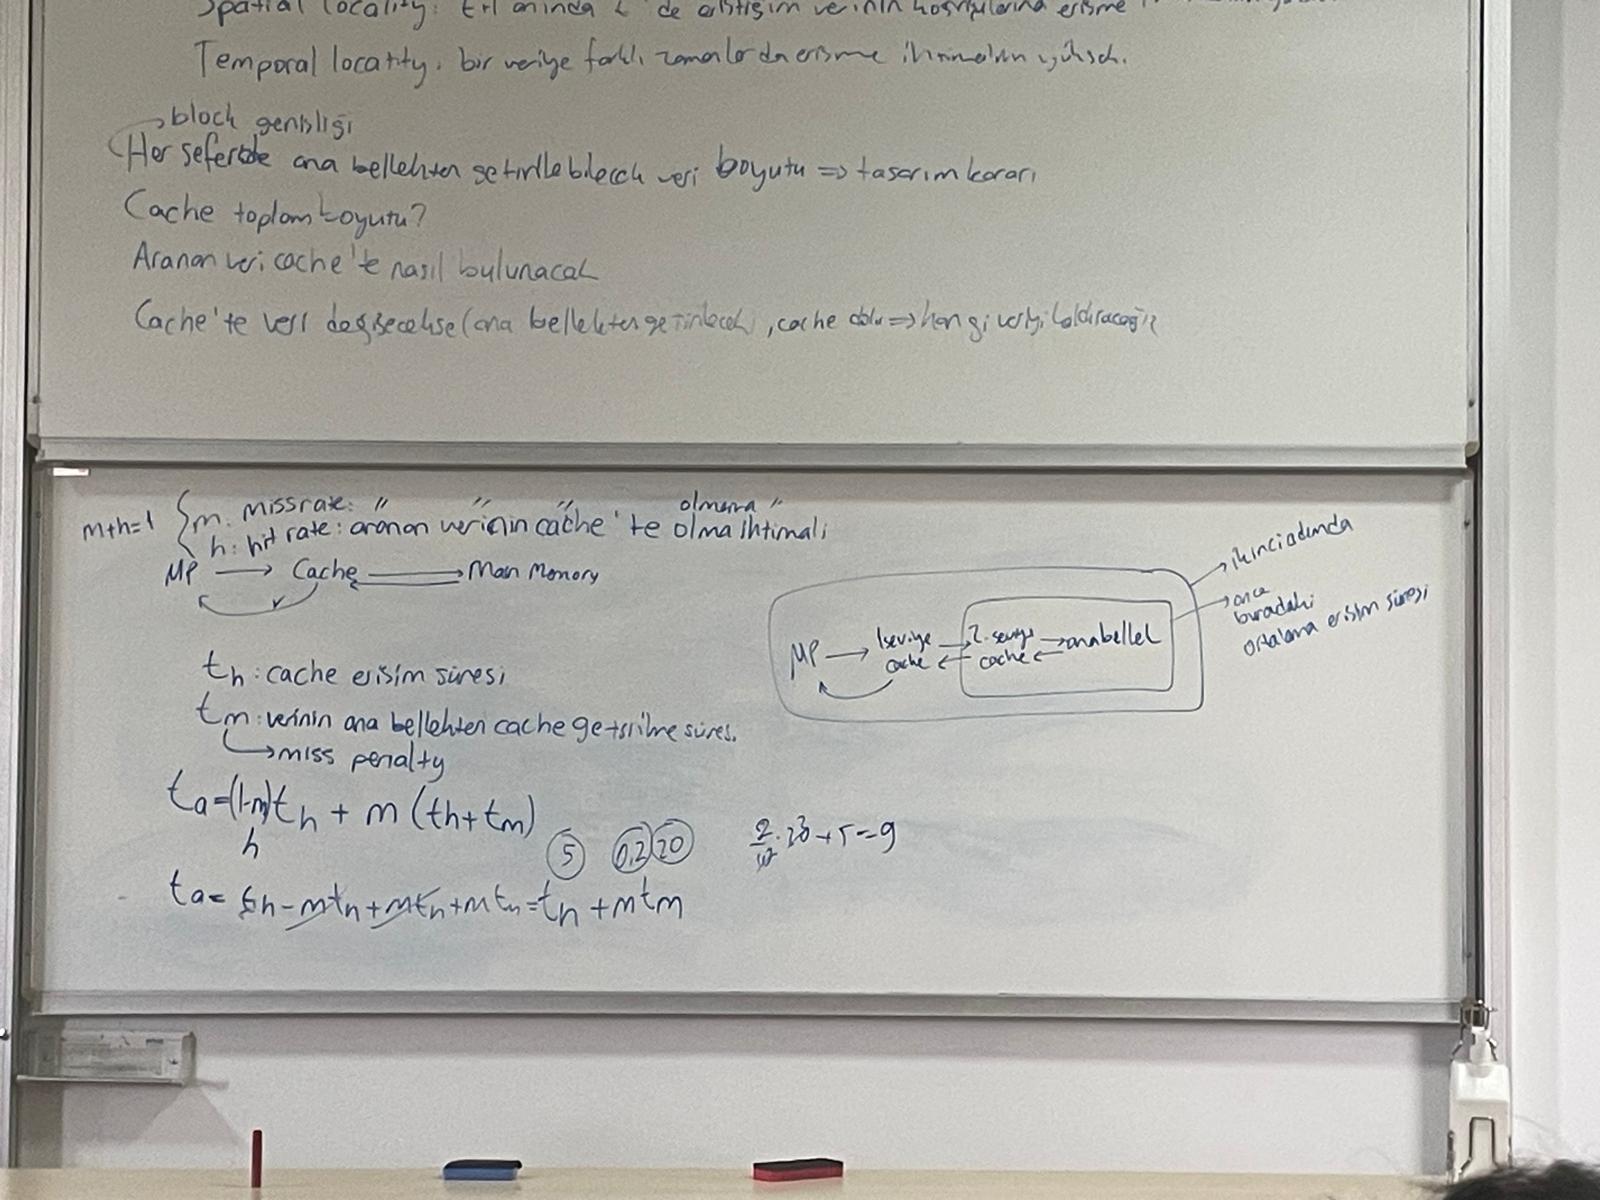 Spatial locality: t+1 anında de eriştiğim verinin komşularına erişme
Temporal locality, bir veriye farklı zamanlarda erişme ihtimalim yüksek.
→ block genişliği
Her seferde ana bellekten getirilebilecek veri boyutu => tasarım kararı
Cache toplam boyutu?
Aranan veri cache'te nasıl bulunacak
Cache'te veri değişecekse (ana bellekten getirilecek), cache dolu => hangi veriyi kaldıracağız
m+h=1 { m: miss rate: " " " olmama "
h: hit rate: aranan verinin cache'te olma ihtimali
MP → Cache → Main Memory
th: cache erişim süresi
tm: verinin ana bellekten cache getirilme süresi.
→ miss penalty
ta=(1-m)th + m(th+tm)
h
5 0,2 20
ta= th-mth+mth+mtm=th+mtm
2/10 . 20 + 5 = 9
→ ikinci adımda
→ önce
buradaki
ortalama erişim süresi
MP → 1.seviye cache → 2.seviye cache → anabellek